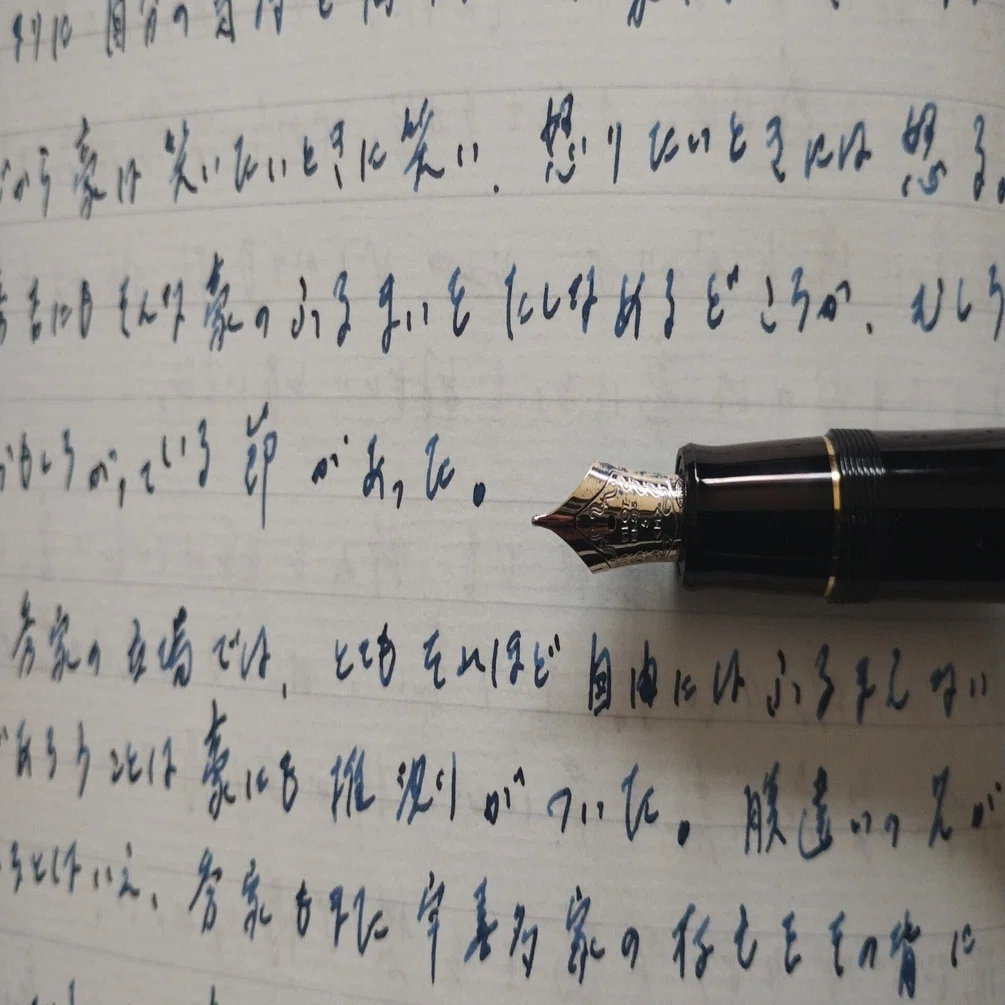 りに自分の
から豪は笑いたいときに笑い、怒りたいときには怒る。
秀吉にもそんな豪のふるまいをたしなめるどころか、むしろ
おもしろがっている節があった。
秀家の立場では、とてもそれほど自由にはふるまえない
であろうことは豪にも推測がついた。腹違いの兄が
るとはいえ、秀家もまた宇喜多家の存亡をその背に